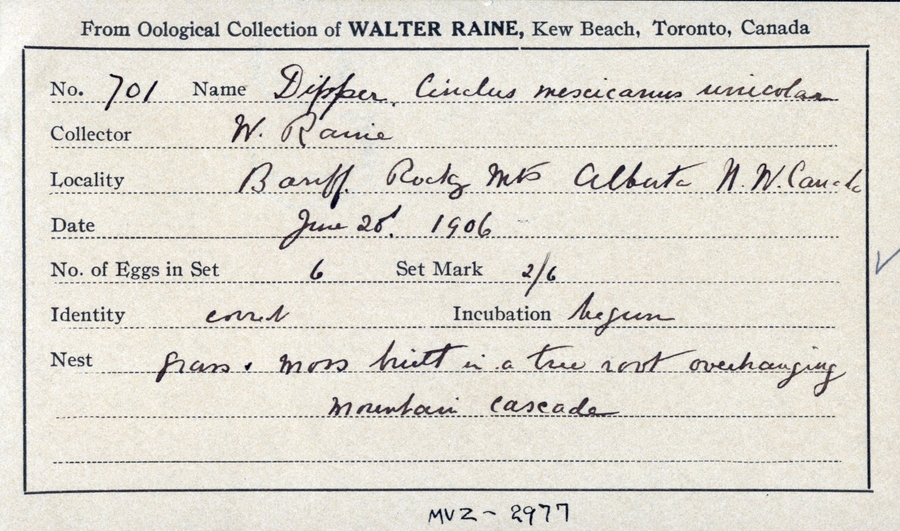 From Oological Collection of WALTER RAINE, Kew Beach, Toronto, Canada
No. 701 Name Dipper. Cinclus mexicanus unicolor
Collector W. Raine
Locality Banff. Rocky Mts Alberta N.W. Canada
Date June 1906
No. of Eggs in Set 6 Set Mark 2/6
Identity correct Incubation begun
Nest grass & moss built in a tree root overhanging
mountain cascade
MVZ - 2977